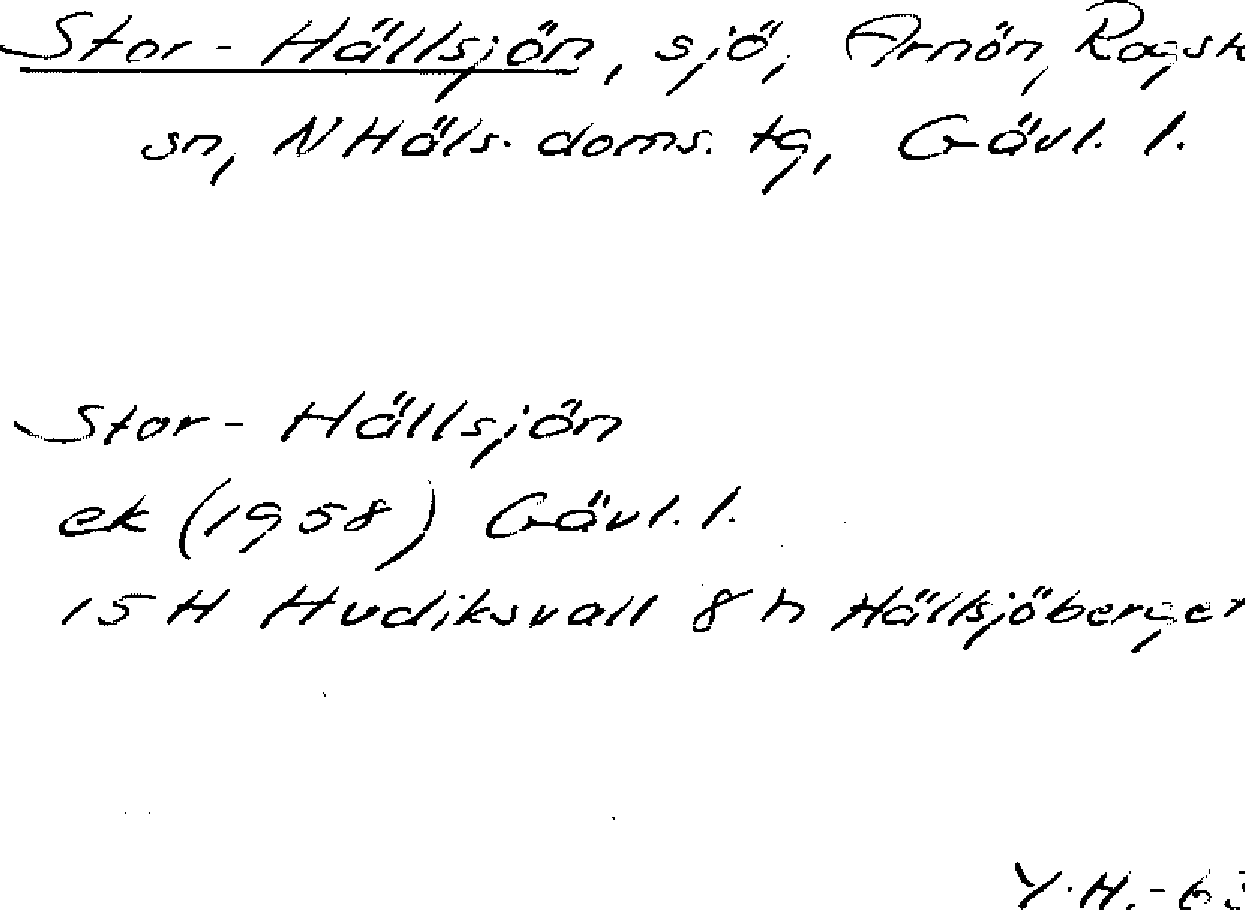 Stor-Hällsjön, sjö, Arnön, Rogsk
sn, N Häls. doms. tg, Gävl. l.
Stor-Hällsjön
ek (1958) Gävl. l.
15 H Hudiksvall 8 h Hällsjöberget
Y.H.-63